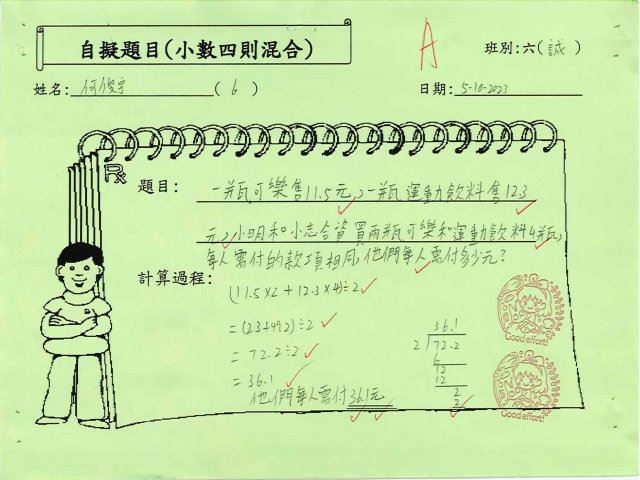 自擬題目(小數四則混合)
A
班別:六(誠)
姓名:何俊宇(6)
日期:5-10-2023
題目:一瓶可樂售11.5元,一瓶運動飲料售12.3
元,小明和小志合資買兩瓶可樂和運動飲料4瓶,
每人需付的款項相同,他們每人需付多少元?
計算過程:
(11.5×2+12.3×4)÷2
=(23+49.2)÷2
=72.2÷2
=36.1
他們每人需付36.1元
36.1
2 72.2
6
12
12
2
2
Good effort!
Good effort!